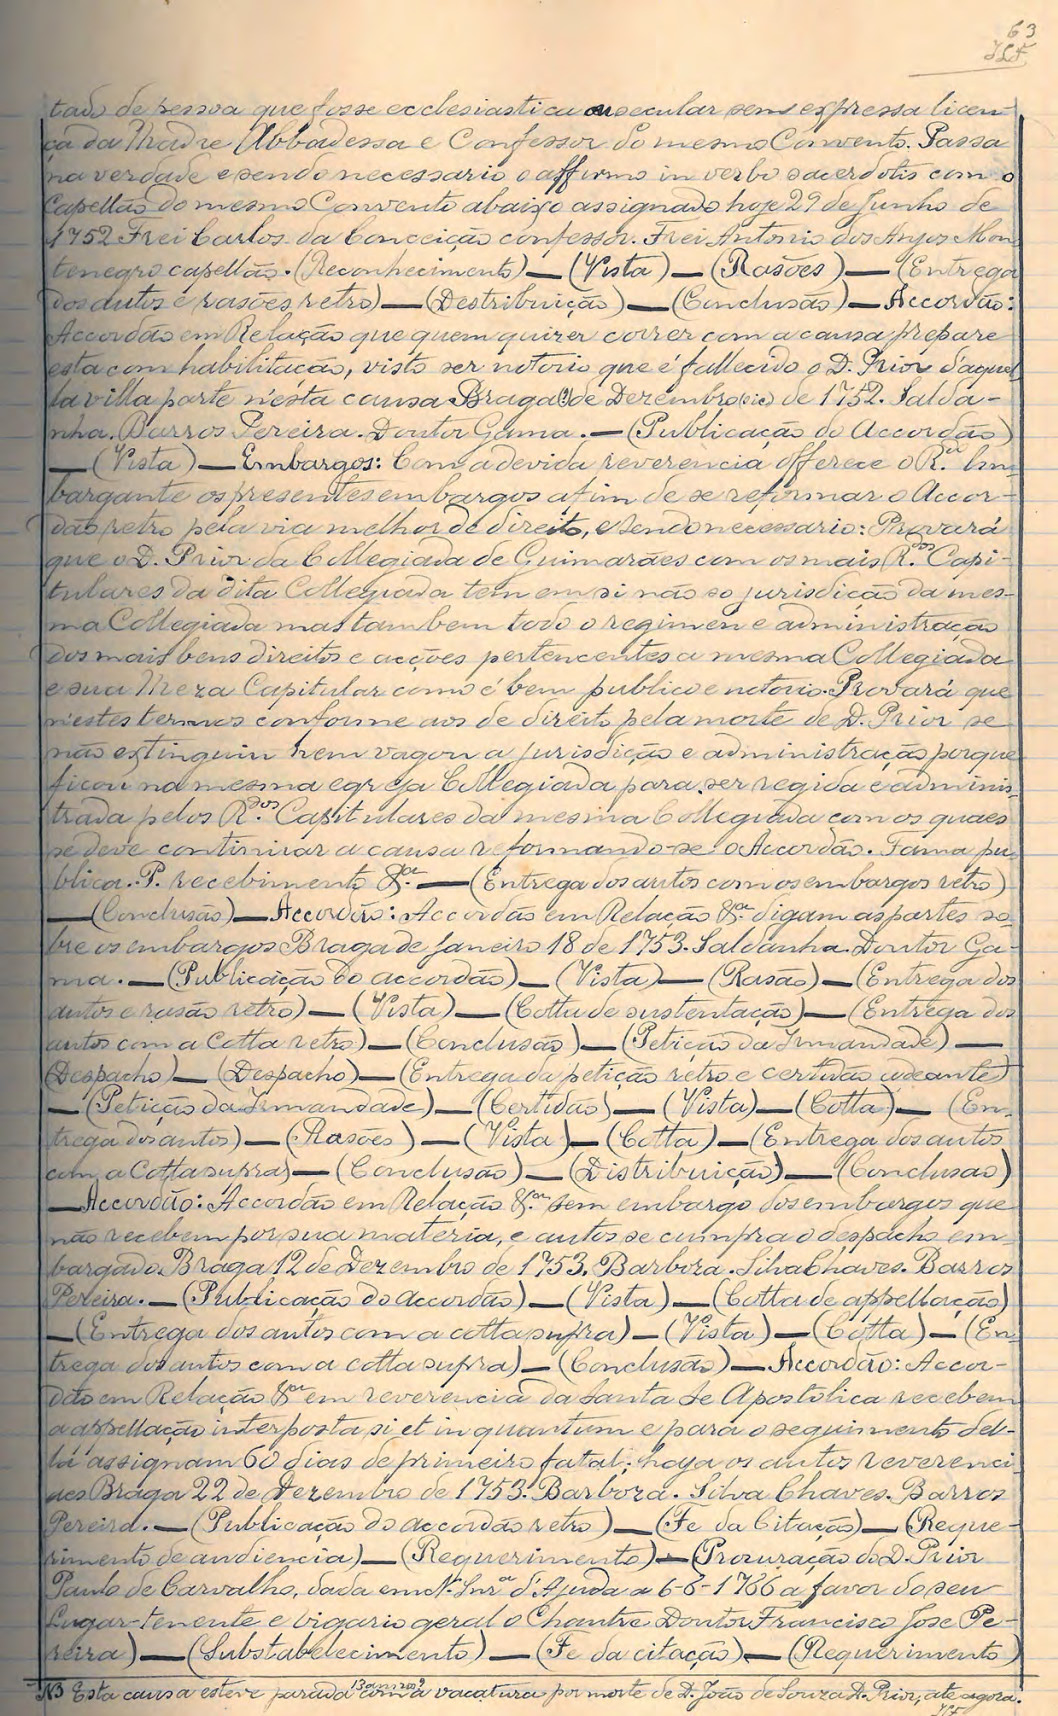 63
JLF
tado de pessoa que fosse ecclesiastica ou secular sem expressa licen-
ça da Madre Abbadessa e Confessor do mesmo Convento. Passa
na verdade e sendo necessario o affirmo in verbo sacerdotis com o
Capellão do mesmo Convento abaixo assignado hoje 29 de Junho de
1752 Frei Carlos da Conceição confessor. Frei Antonio dos Anjos Mon
tenegro capellão. (Reconhecimento) — (Vista) — (Rasões) — (Entrega
dos autos e rasões retro) — (Destribuição) — (Conclusão) — Accordão:
Accordão em Relação que quem quizer correr com a causa prepare
esta com habilitação, visto ser notorio que é fallecido o D. Prior d'aquel
la villa parte n'esta causa Braga (?) de Dezembro (sic) de 1752. Salda-
nha. Barros Pereira. Doutor Gama. — (Publicação do Accordão)
— (Vista) — Embargos: Com a devida reverencia offerece o R.do Em-
bargante os presentes embargos afim de se reformar o Accor-
dão retro pela via melhor de direito, e sendo necessario: Provará
que o D. Prior da Collegiada de Guimarães com os mais R.dos Capi-
tulares da dita Collegiada tem em si não so jurisdição da mes-
ma Collegiada mas tambem todo o regimen e administração
dos mais bens direitos e acções pertencentes a mesma Collegiada
e sua Meza Capitular como é bem publico e notorio. Provará que
n'estes termos conforme aos de direito pela morte de D. Prior se
não extinguiu nem vagou a jurisdição e administração porque
ficou na mesma egreja Collegiada para ser regida e adminis-
trada pelos R.dos Capitulares da mesma Collegiada com os quaes
se deve continuar a causa reformando-se o Accordão. Fama pu-
blica. P. recebimento &.a — (Entrega dos autos com os embargos retro)
— (Conclusão) — Accordão: Accordão em Relação &.a digam as partes so-
bre os embargos Braga de Janeiro 18 de 1753. Saldanha. Doutor Ga-
ma. — (Publicação do accordão) — (Vista) — (Rasão) — (Entrega dos
autos e rasão retro) — (Vista) — (Cotta de sustentação) — (Entrega dos
autos com a Cotta retro) — (Conclusão) — (Petição da Irmandade) —
(Despacho) — (Despacho) — (Entrega da petição retro e certidão adeante)
— (Petição da Irmandade) — (Certidão) — (Vista) — (Cotta) — (En-
trega dos autos) — (Rasões) — (Vista) — (Cotta) — (Entrega dos autos
com a Cotta supra) — (Conclusão) — (Distribuição) — (Conclusão)
— Accordão: Accordão em Relação &.a sem embargo dos embargos que
não recebem por sua materia, e autos se cumpra o despacho em-
bargado. Braga 12 de Dezembro de 1753. Barboza. Silva Chaves. Barros
Pereira. — (Publicação do Accordão) — (Vista) — (Cotta de appellação)
— (Entrega dos autos com a cotta supra) — (Vista) — (Cotta) — (En-
trega dos autos com a cotta supra) — (Conclusão) — Accordão: Accor-
dão em Relação &.a em reverencia da Santa Se Apostolica recebem
a appellação interposta, si et in quantum e para o seguimento del-
la assignam 60 dias de primeiro fatal; haja os autos reverenci-
aes Braga 22 de Dezembro de 1753. Barboza. Silva Chaves. Barros
Pereira. — (Publicação do accordão retro) — (Fe da Citação) — (Reque-
rimento de audiencia) — (Requerimento) — (Procuração do D. Prior
Paulo de Carvalho, dada em N. Snr.a d'Ajuda a 6-6-1766 a favor do seu
Lugar-tenente e vigario geral o Chantre Doutor Francisco Jose Pe-
reira) — (Substabelecimento) — (Fe da citação) — (Requerimento)
NB Esta causa esteve parada 13 annos com a vacatura por morte de D. João de Souza D. Prior, ate agora.
JLF